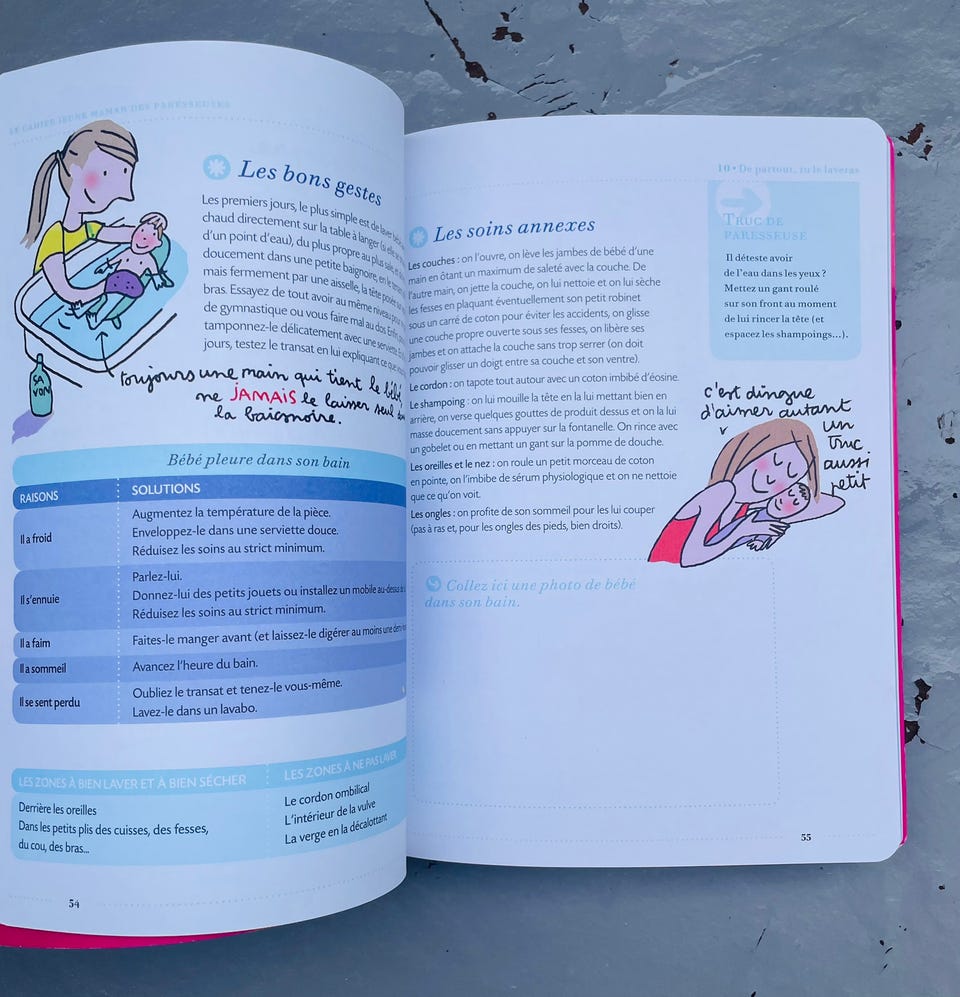 LE CAHIER JEUNE MAMAN DES PARESSEUSES
Les bons gestes
Les premiers jours, le plus simple est de laver bébé
chaud directement sur la table à langer (si elle
d'un point d'eau), du plus propre au plus sale,
doucement dans une petite baignoire, en le
mais fermement par une aisselle, la tête
bras. Essayez de tout avoir au même niveau pour
de gymnastique ou vous faire mal au dos. Enfin,
tamponnez-le délicatement avec une serviette.
jours, testez le transat en lui expliquant ce que
SA
VON
toujours une main qui tient le bébé,
ne JAMAIS le laisser seul dans
la baignoire.
Bébé pleure dans son bain
RAISONS
SOLUTIONS
Il a froid
Augmentez la température de la pièce.
Enveloppez-le dans une serviette douce.
Réduisez les soins au strict minimum.
Il s'ennuie
Parlez-lui.
Donnez-lui des petits jouets ou installez un mobile au-dessus
Réduisez les soins au strict minimum.
Il a faim
Faites-le manger avant (et laissez-le digérer au moins une
Il a sommeil
Avancez l'heure du bain.
Il se sent perdu
Oubliez le transat et tenez-le vous-même.
Lavez-le dans un lavabo.
LES ZONES À BIEN LAVER ET À BIEN SÉCHER
Derrière les oreilles
Dans les petits plis des cuisses, des fesses,
du cou, des bras...
LES ZONES À NE PAS LAVER
Le cordon ombilical
L'intérieur de la vulve
La verge en la décalottant
54
10 • De partout, tu le laveras
Les soins annexes
Les couches : on l'ouvre, on lève les jambes de bébé d'une
main en ôtant un maximum de saleté avec la couche. De
l'autre main, on jette la couche, on lui nettoie et on lui sèche
les fesses en plaquant éventuellement son petit robinet
sous un carré de coton pour éviter les accidents, on glisse
une couche propre ouverte sous ses fesses, on libère ses
jambes et on attache la couche sans trop serrer (on doit
pouvoir glisser un doigt entre sa couche et son ventre).
Le cordon : on tapote tout autour avec un coton imbibé d'éosine.
Le shampoing : on lui mouille la tête en la lui mettant bien en
arrière, on verse quelques gouttes de produit dessus et on la lui
masse doucement sans appuyer sur la fontanelle. On rince avec
un gobelet ou en mettant un gant sur la pomme de douche.
Les oreilles et le nez : on roule un petit morceau de coton
en pointe, on l'imbibe de sérum physiologique et on ne nettoie
que ce qu'on voit.
Les ongles : on profite de son sommeil pour les lui couper
(pas à ras et, pour les ongles des pieds, bien droits).
TRUC DE
PARESSEUSE
Il déteste avoir
de l'eau dans les yeux ?
Mettez un gant roulé
sur son front au moment
de lui rincer la tête (et
espacez les shampoings...).
c'est dingue
d'aimer autant
un
truc
aussi
petit
Collez ici une photo de bébé
dans son bain.
55